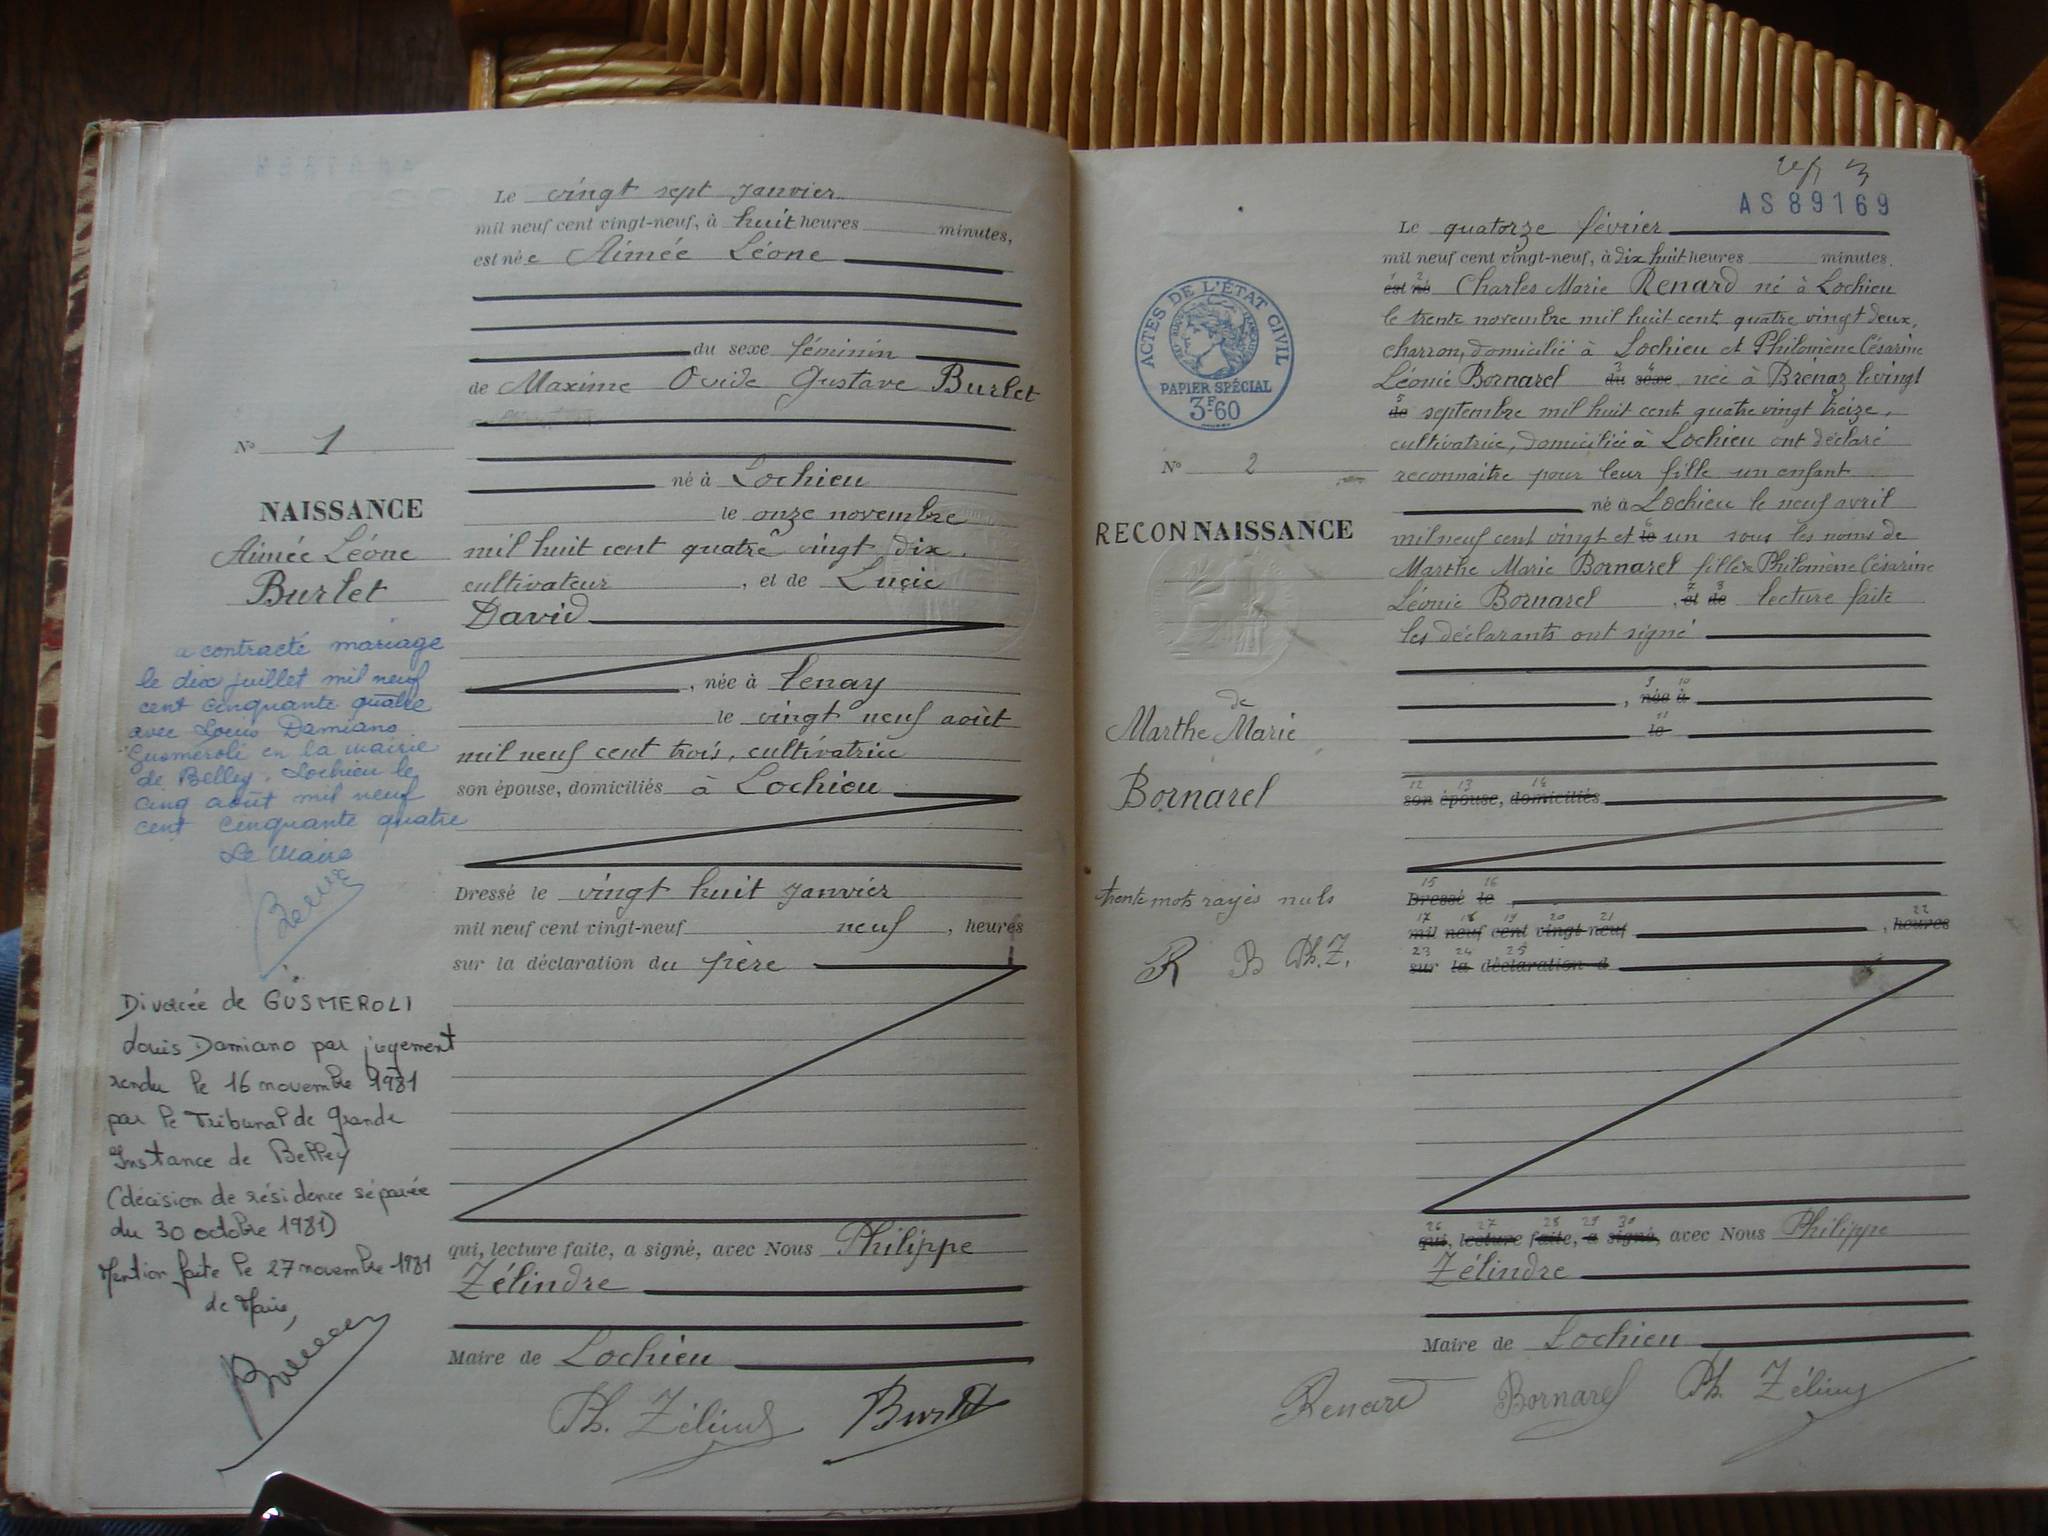 Le vingt sept janvier
mil neuf cent vingt-neuf, à huit heures minutes,
est née Aimée Léone
du sexe féminin
de Maxime Ovide Gustave Burlet
né à Lochieu
le onze novembre
mil huit cent quatre vingt dix,
cultivateur, et de Lucie
David
, née à Tenay
le vingt neuf août
mil neuf cent trois, cultivatrice
son épouse, domiciliés à Lochieu
Dressé le vingt huit janvier
mil neuf cent vingt-neuf neuf, heures
sur la déclaration du père
qui, lecture faite, a signé, avec Nous Philippe
Zélindre
Maire de Lochieu
Ph. Zélind Burlet
N° 1
NAISSANCE
Aimée Léone
Burlet
a contracté mariage
le dix juillet mil neuf
cent cinquante quatre
avec Louis Damiano
Gusméroli en la mairie
de Belley. Lochieu le
cinq août mil neuf
cent cinquante quatre
Le Maire
Divorcée de GUSMEROLI
Louis Damiano par jugement
rendu le 16 novembre 1981
par le Tribunal de Grande
Instance de Belley
(décision de résidence séparée
du 30 octobre 1981)
Mention faite le 27 novembre 1981
Le Maire,
AS 89169
Le quatorze février
mil neuf cent vingt-neuf, à dix huit heures minutes.
est né Charles Marie Renard né à Lochieu
le trente novembre mil huit cent quatre vingt deux,
charron, domicilié à Lochieu et Philomène Césarine
Léonie Bornarel du sexe née à Brenaz le vingt
de septembre mil huit cent quatre vingt treize,
cultivatrice, domiciliée à Lochieu ont déclaré
reconnaitre pour leur fille un enfant
né à Lochieu le neuf avril
mil neuf cent vingt et le un sous les noms de
Marthe Marie Bornarel fille de Philomène Césarine
Léonie Bornarel , et de lecture faite
les déclarants ont signé
, née à
le
son épouse, domiciliés
Dressé le
mil neuf cent vingt-neuf , heures
sur la déclaration d
qui, lecture faite, a signé, avec Nous Philippe
Zélindre
Maire de Lochieu
Renard Bornarel Ph. Zélind
ACTES DE L'ÉTAT CIVIL
PAPIER SPÉCIAL
3F60
N° 2
RECONNAISSANCE
de
Marthe Marie
Bornarel
trente mots rayés nuls
R B Ph. Z.